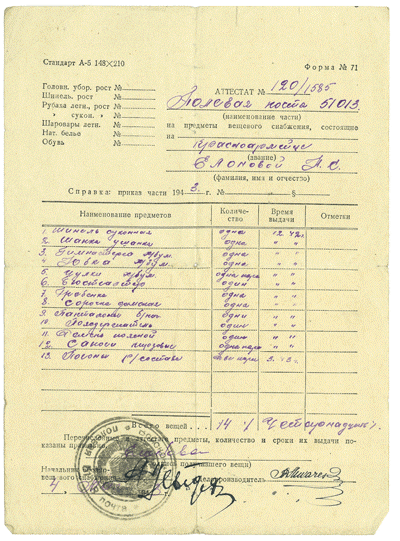 Стандарт А-5 148×210
Форма № 71
Головн. убор. рост №
Шинель. рост №
Рубаха летн., рост №
" сукон. " №
Шаровары летн. №
Нат. белье №
Обувь №
АТТЕСТАТ № 120/1585
Полевая почта 57013
(наименование части)
на предметы вещевого снабжения, состоящие
на красноармейце
(звание)
Елоновой
(фамилия, имя и отчество)
Справка: приказ части 194 3 г. № §
Наименование предметов
Количество
Время выдачи
Отметки
1. Шинель суконная одна 12 42г.
2. Шапка ушанка одна " "
3. Гимнастерка х/бум. одна " "
4. Юбка х/бум. одна " "
5. Чулки х/бум. одна пара " "
6. Бюстгальтер один " "
7. одна " "
8. Сорочка дамская одна " "
9. Панталоны одна " "
10. один " "
11. Ремень поясной один " "
12. Сапоги кирзовые одна пара " "
13. Погоны р/состава две пары 3. 43 г.
Всего вещей 14 / Четырнадцать /.
Перечисленные в аттестате предметы, количество и сроки их выдачи показаны правильно
получившего вещи)
Начальник
вещевого снабжения
Делопроизводитель